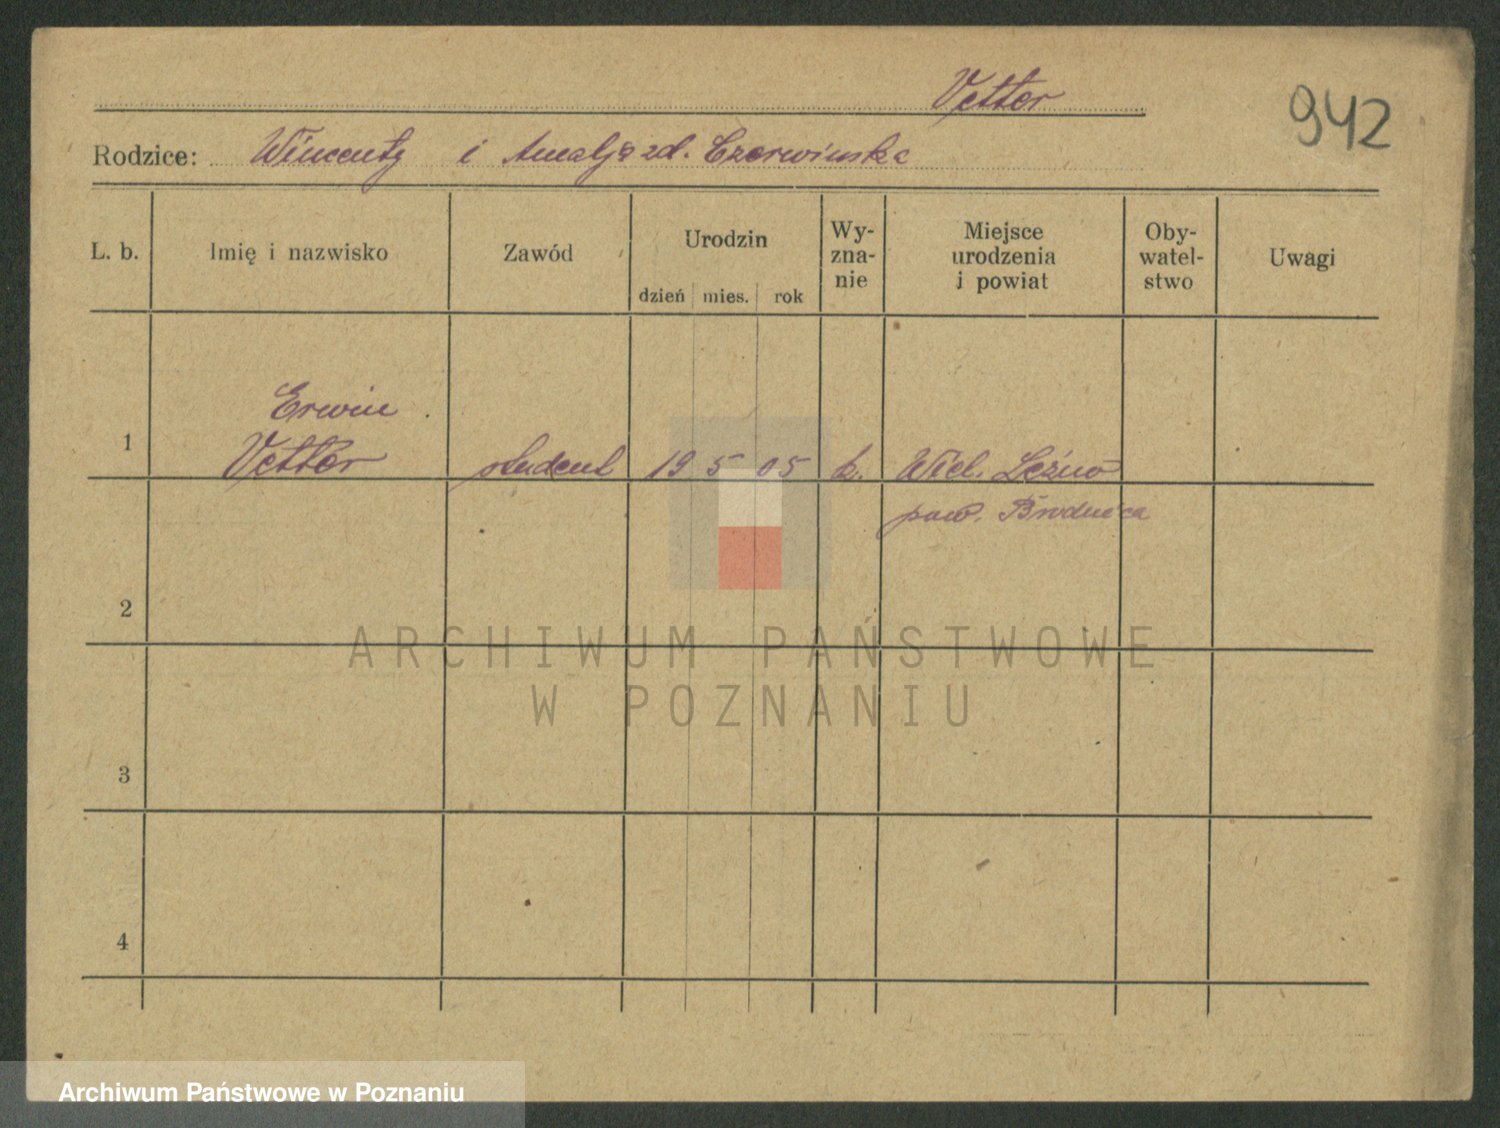 Vetter
942
Rodzice: Wincenty i Amalja zd. Czerwińska
L. b.
Imię i nazwisko
Zawód
Urodzin
dzień mies. rok
Wy-
zna-
nie
Miejsce
urodzenia
i powiat
Oby-
watel-
stwo
Uwagi
Erwin
1 Vetter student 19 5 05 k. Wiel. Leźno
pow. Brodnica
2
3
4
ARCHIWUM PAŃSTWOWE
W POZNANIU
Archiwum Państwowe w Poznaniu